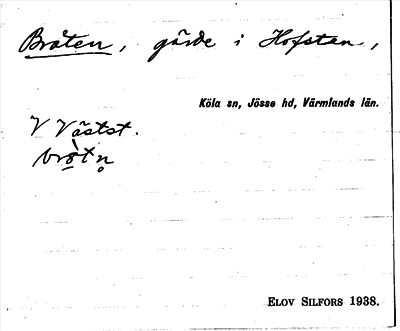 Bråten, gärde i Hofstan,
Köla sn, Jösse hd, Värmlands län.
V Västst.
bròtn̥
ELOV SILFORS 1938.